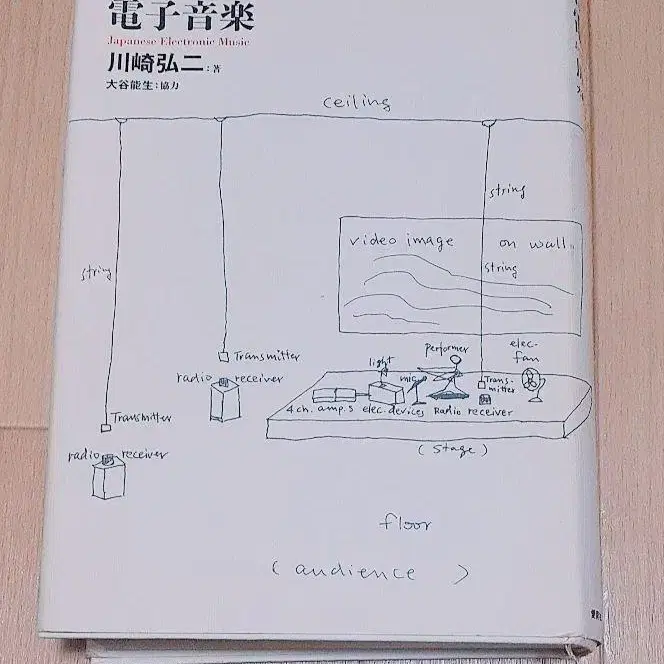 電子音楽
Japanese Electronic Music
川崎弘二:著
大谷能生:協力
ceiling
string
video image on wall
string
string
Transmitter
radio receiver
light
performer
elec-
fan
mic
Trans-
mitter
4ch. amp.s elec. devices Radio receiver
(stage)
Transmitter
radio receiver
floor
(audience)